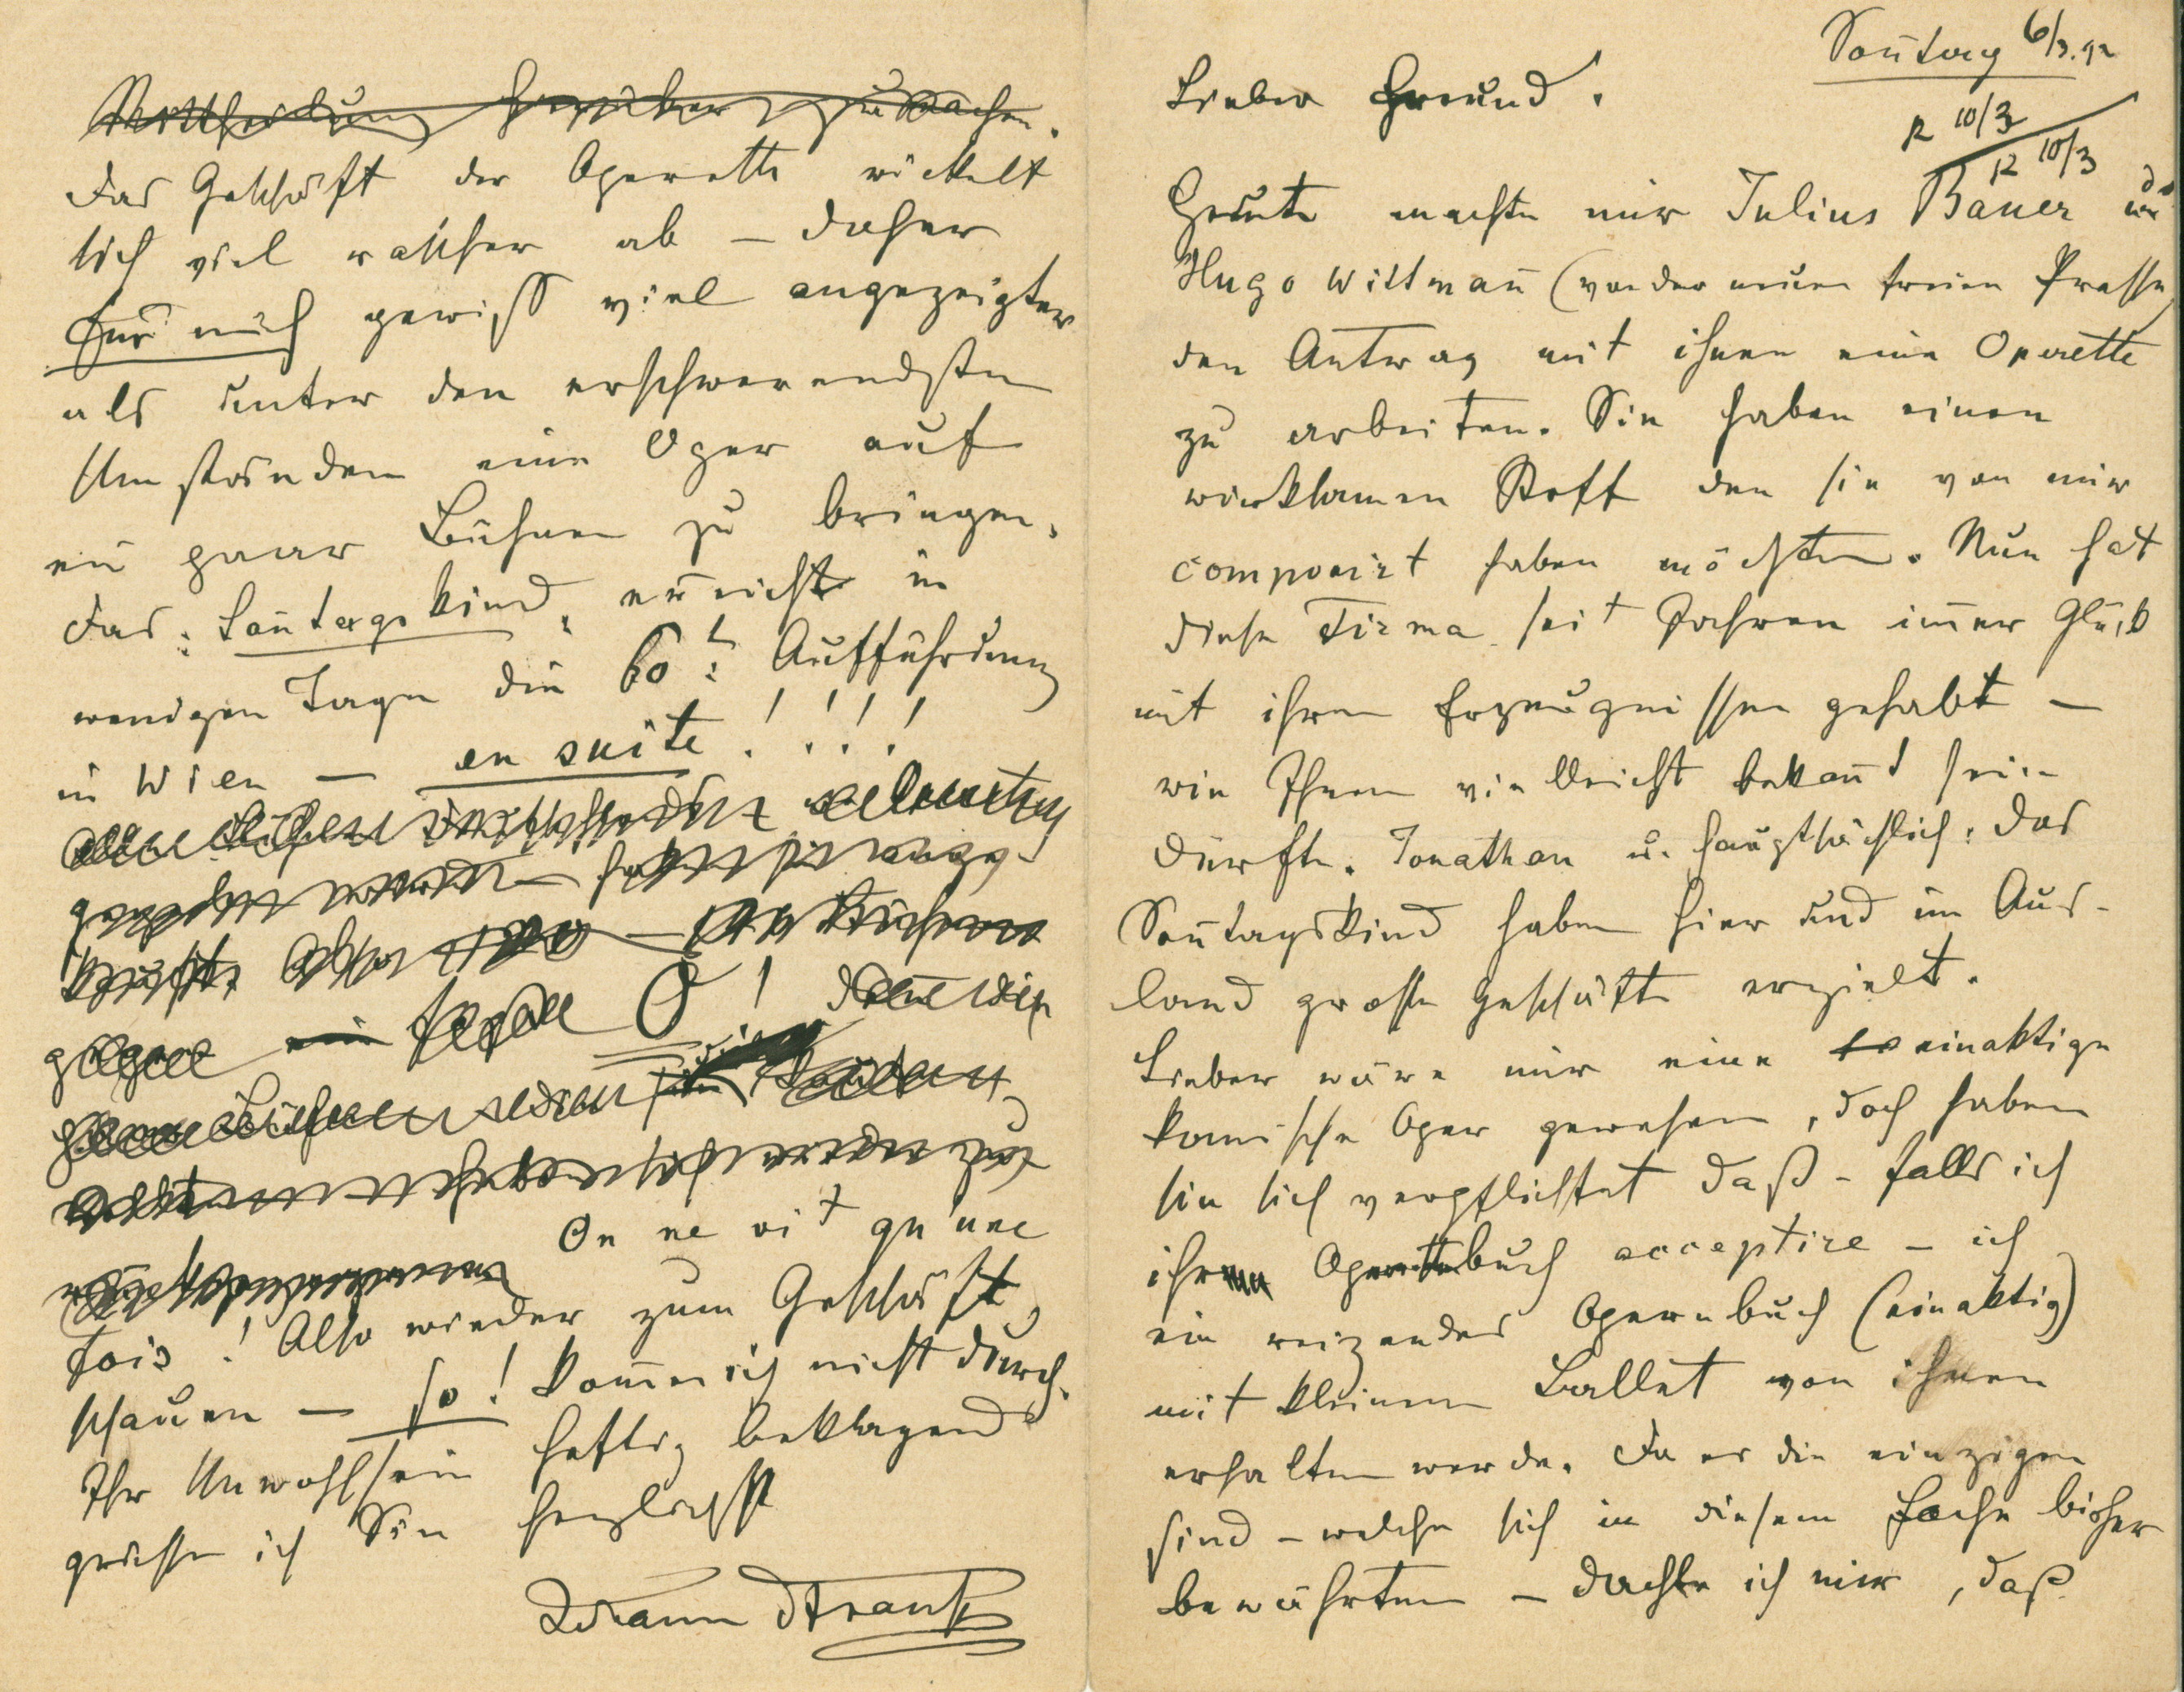 Sontag 6/3.92
Lieber Freund!
R 10/3
R 10/3
Heute machte mir Julius Bauer und
Hugo Wittman (von der neuen freien Presse)
den Antrag mit ihnen eine Operette
zu arbeiten. Sie haben einen
wirksamen Stoff den sie von mir
componirt haben möchten. Nun hat
diese Firma seit Jahren imer Glück
mit ihren Erzeugnissen gehabt –
wie Ihnen vielleicht bekant sein
dürfte. Jonathan u. hauptsächlich: das
Sontagskind haben hier und im Aus-
land große Geschäfte erzielt.
Lieber wäre mir eine einaktige
komische Oper gewesen, doch haben
sie sich verpflichtet daß – falls ich
ihr Operettebuch acceptire – ich
ein reizendes Opernbuch (einaktig)
mit kleinem Ballet von ihnen
erhalten werde. Da es die einzigen
sind – welche sich in diesem Fache bisher
bewährten – dachte ich mir, daß
Mittheilung hierüber zu machen.
Das Geschäft der Operette wickelt
sich viel rascher ab – daher
für mich gewiß viel angezeigter
als unter den erschwerendsten
Umständen eine Oper auf
ein paar Bühnen zu bringen.
Das: Sontagskind, erreicht in
wenigen Tagen die 60t: Aufführung
in Wien – en suite!!!!
O!
On ne vit qu'une
fois! Also wieder zum Geschäft
schauen – so! kome ich nicht durch.
Ihr Unwohlsein heftig beklagend
grüsse ich Sie herzlichst
Johann Strauss